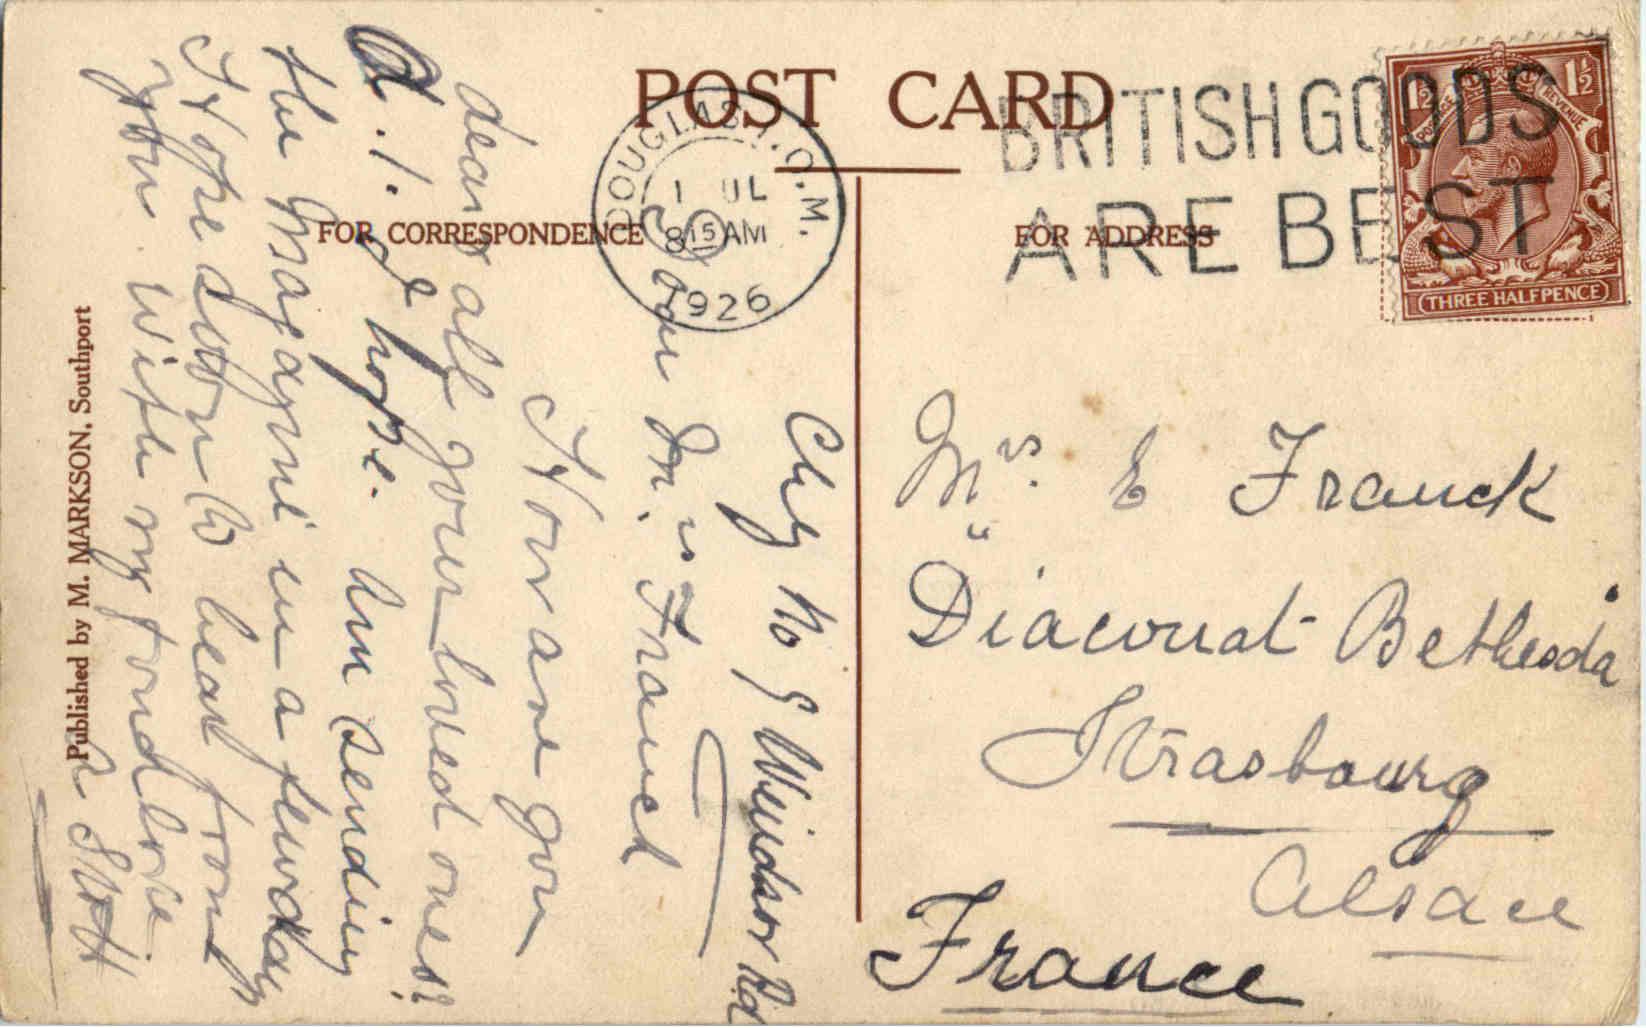 POST CARD
FOR CORRESPONDENCE
FOR ADDRESS
DOUGLAS I.O.M.
1 JL
8 15 AM
1926
BRITISH GOODS
ARE BEST
POSTAGE REVENUE
1½ 1½
THREE HALFPENCE
Published by M. MARKSON, Southport
No 9 Windsor Rd
Dear Mrs Franck
How are you
dear all your loved ones?
A. 1. I hope. Am sending
the Magazine in a few days
Hope soon to hear from
you. With my fond love
Stott
Mrs. E Franck
Diaconat Bethesda
Strasbourg
Alsace
France